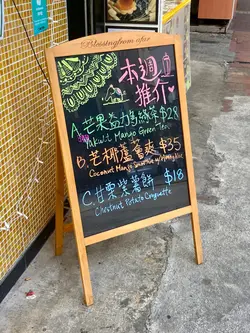 Blessing from afar
本週
推介
A. 芒果益力多綠茶 $28
Yakult Mango Green Tea
B. 芒椰蘆薈爽 $35
Coconut Mango
C. 甘栗紫薯餅 $18
Chestnut Potato Croquette